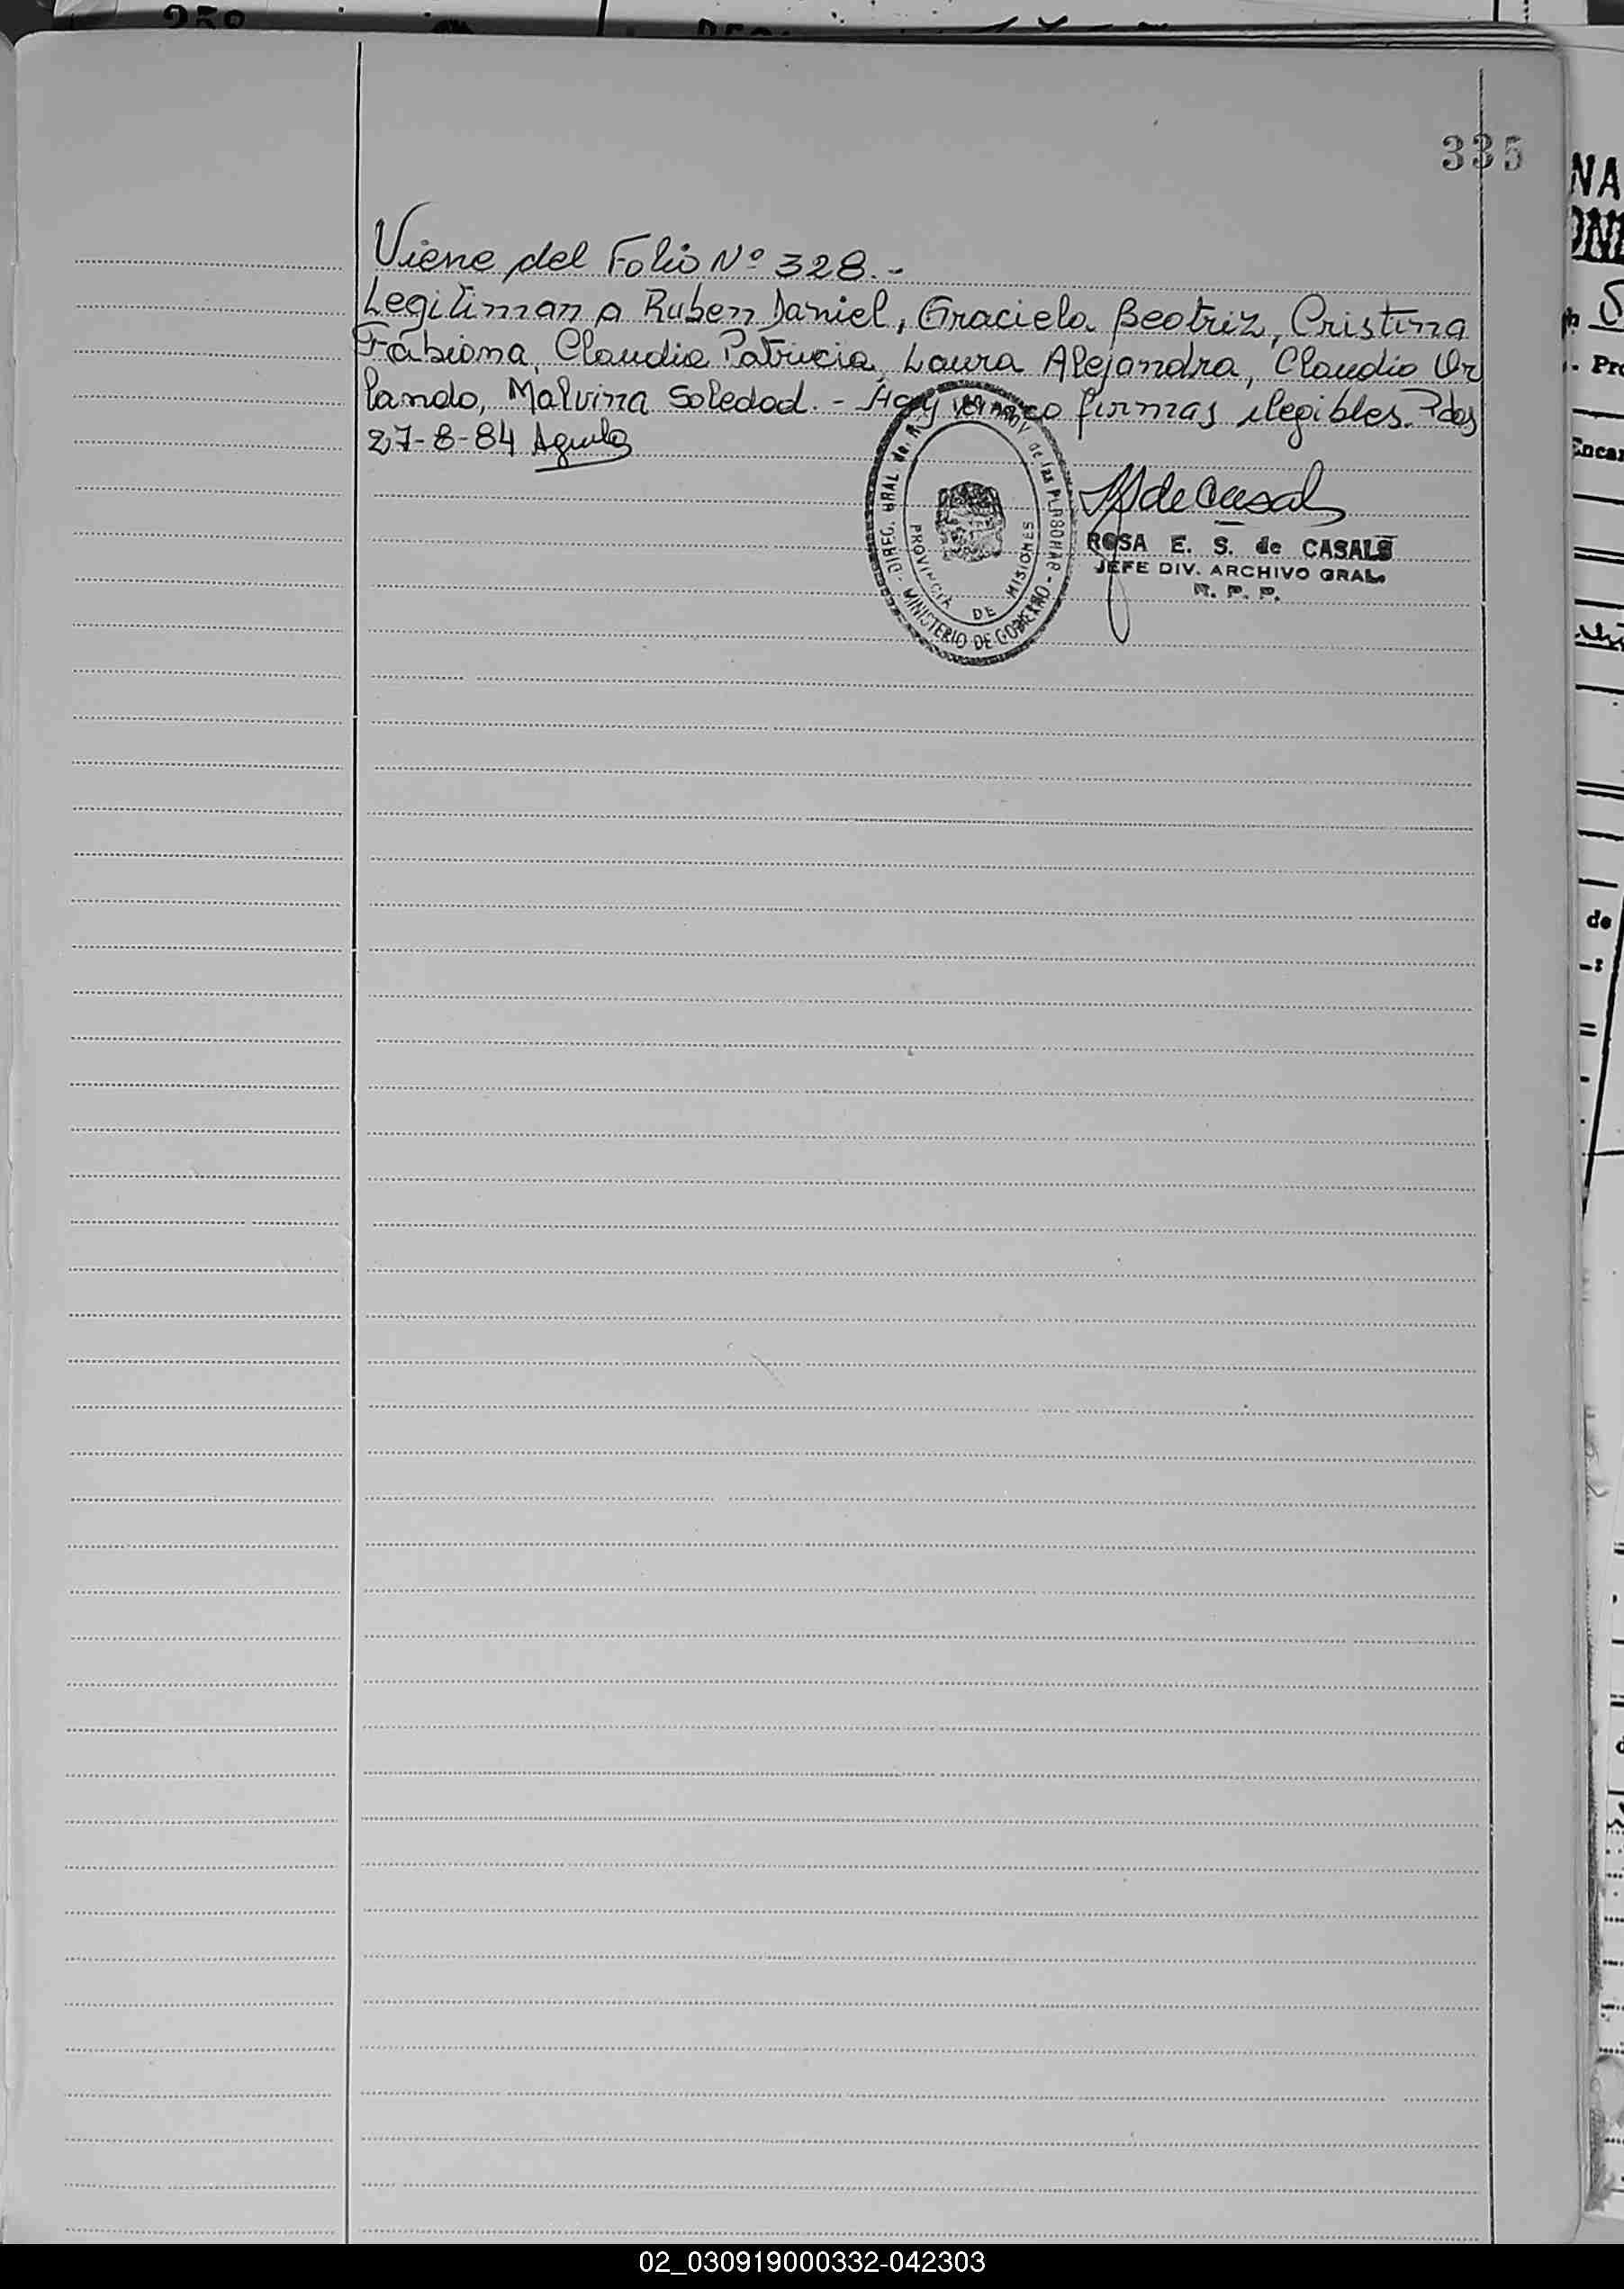 335
Viene del Folio Nº 328.-
Legitiman a Ruben Daniel, Graciela Beatriz, Cristina
Fabiana, Claudia Patricia, Laura Alejandra, Claudio Or
lando, Malvina Soledad.- Hay firmas ilegibles. Pdas
27-8-84
DIREC. GRAL de PROV. de las PERSONAS
MINISTERIO DE GOBIERNO
PROVINCIA DE MISIONES
de Casals
ROSA E. S. de CASALS
JEFE DIV. ARCHIVO GRAL.
R. P. P.
02_030919000332-042303